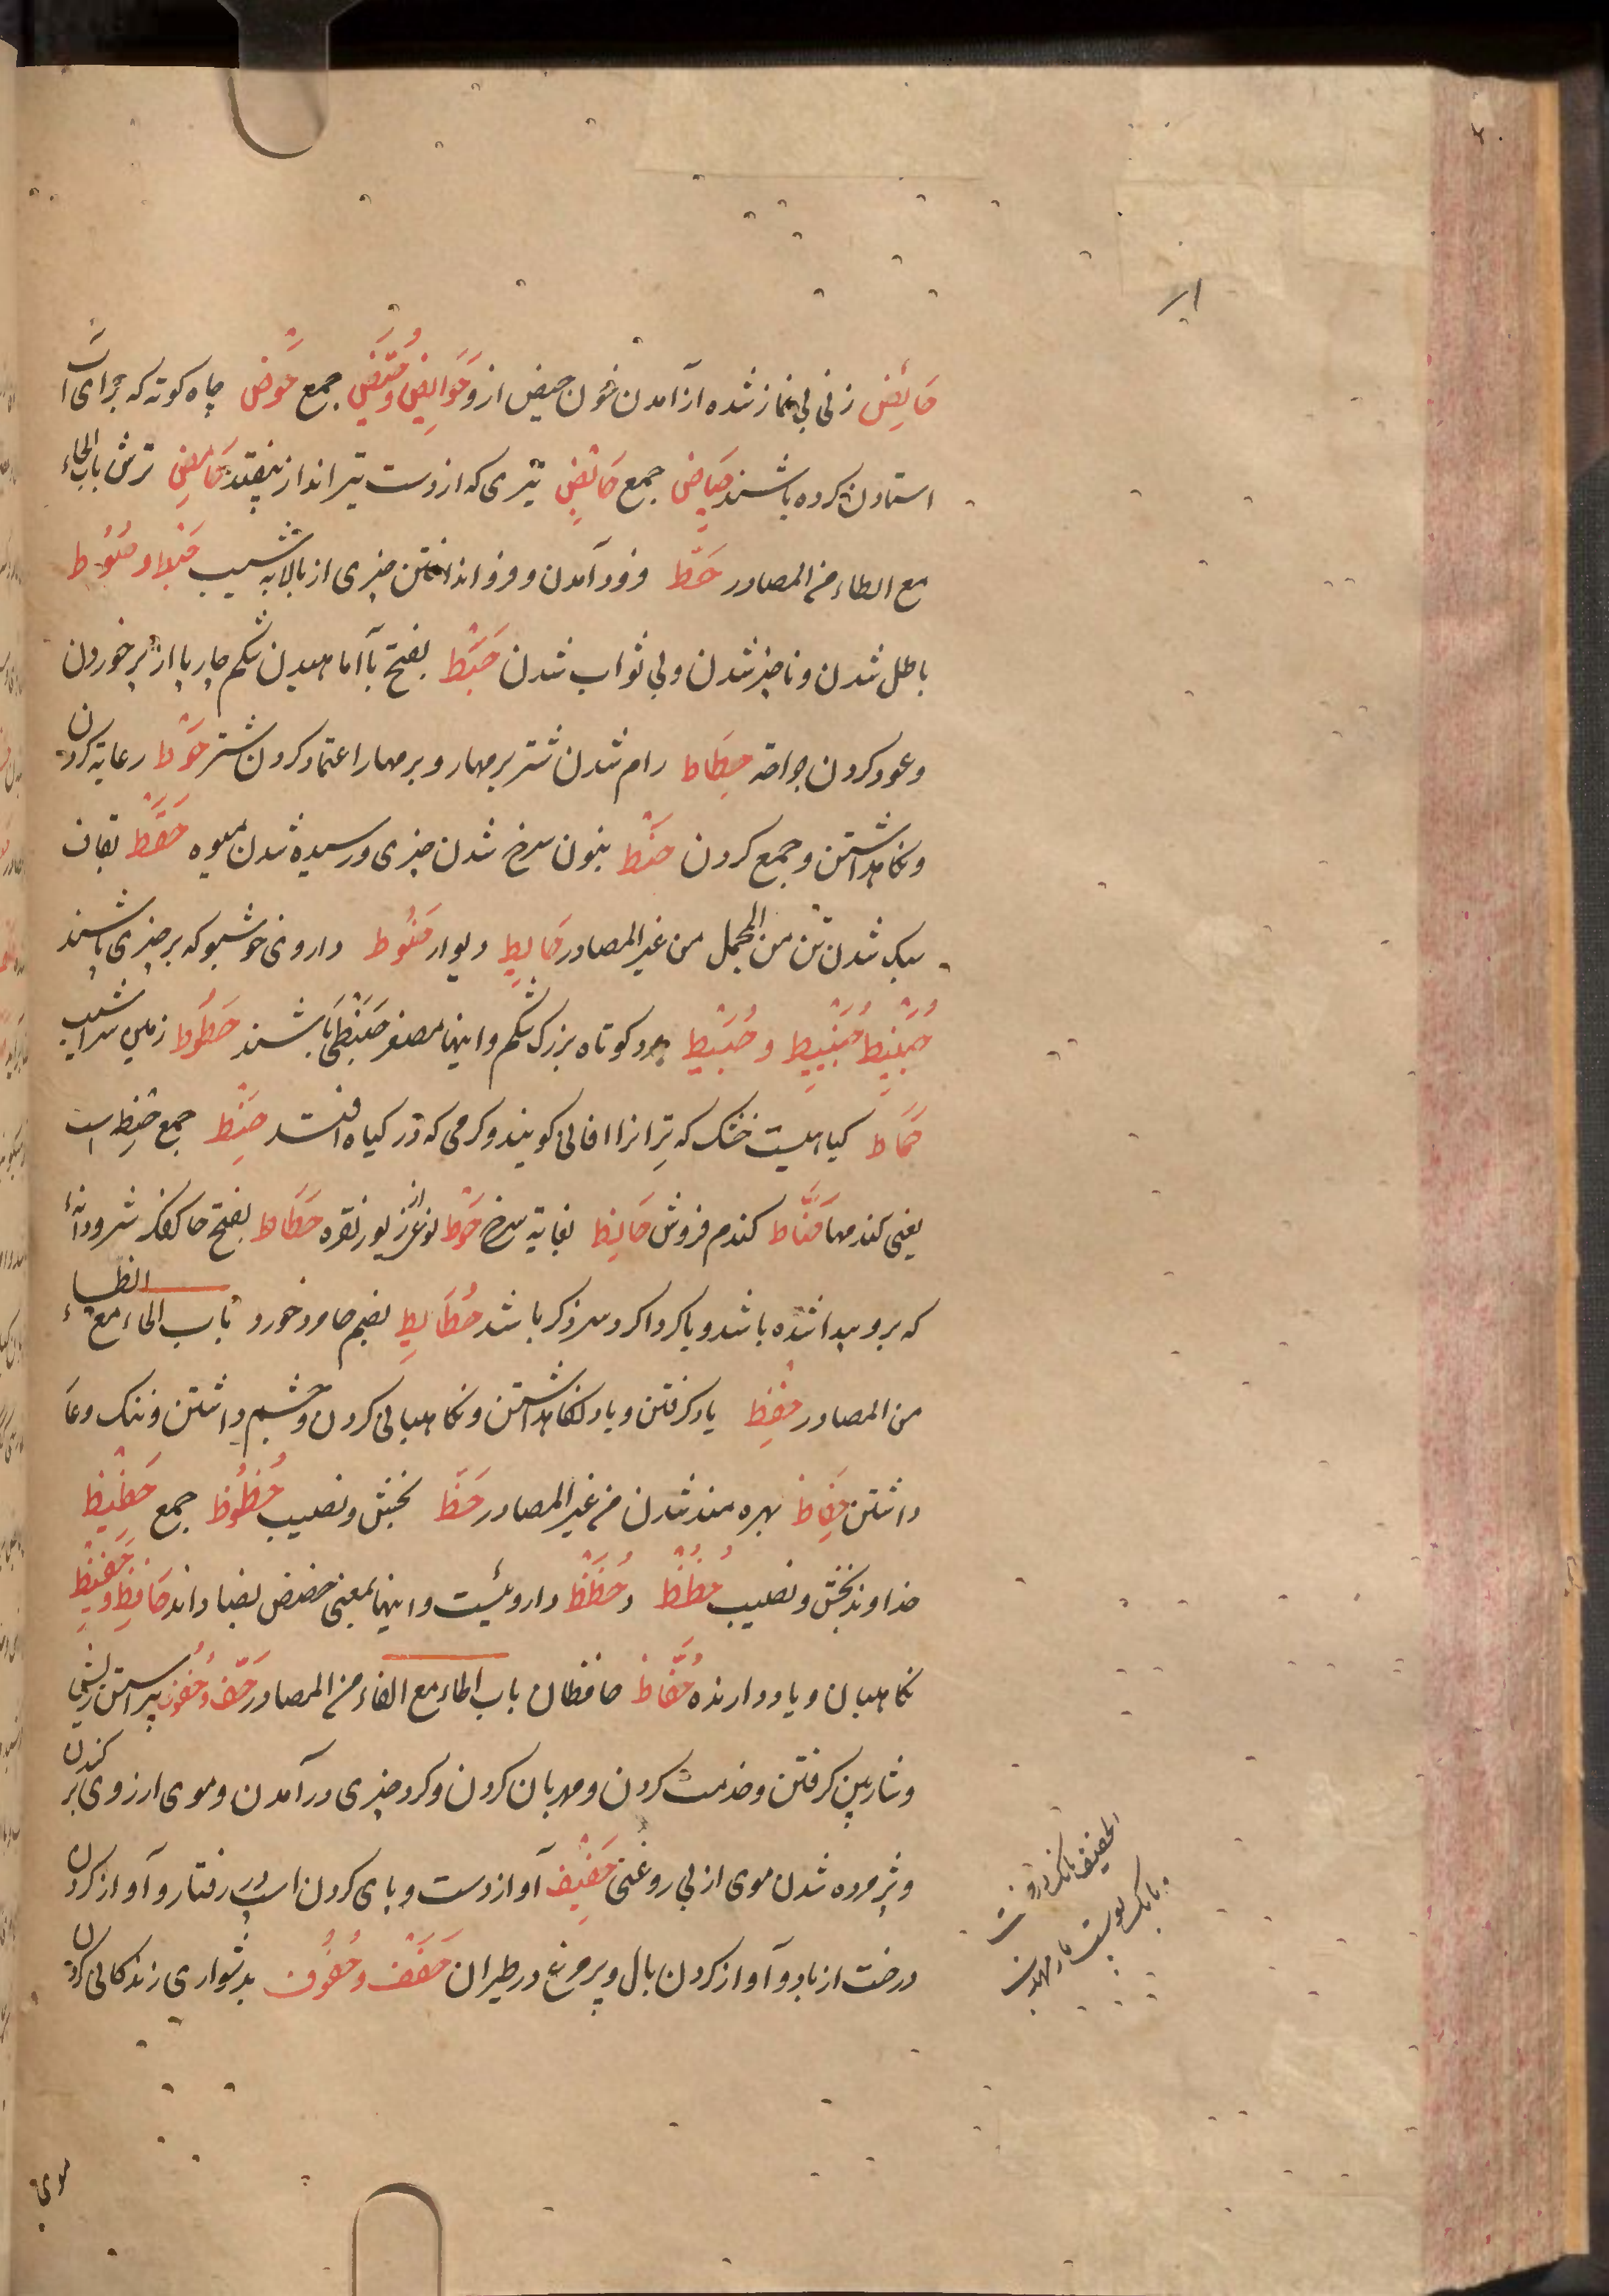 حَائِض زنی بی نماز شده از آمدن خون حیض ازو حَوَائِض و حُیَّض جمع حَوْض چاه کوته که برای آب
استادن کرده باشند حِیَاض جمع حَائِض تیری که از دست تیرانداز بیفتد حَامِض ترش باب الحاء
مع الطاء من المصادر حَطّ فرود آمدن و فرو انداختن چیزی از بالا به شیب حَبْط و حُبُوط
باطل شدن و ناچیز شدن و بی ثواب شدن حَبَط بفتح با آماهیدن شکم چارپا از پر خوردن
و عود کردن جراحة حِطَاط رام شدن شتر بر مهار و بر مهار اعتماد کردن شتر حَوْط رعایة کردن
و نگاهداشتن و جمع کردن حَنْط بنون سرخ شدن چیزی و رسیده شدن میوه حَقَط بقاف
سبک شدن تن من المجمل من غیر المصادر حَایِط دیوار حَنُوط داروی خوشبو که بر چیزی پاشند
حُبَیْنِط حُبَیْنِیط و حُبَیْط مرد کوتاه بزرک شکم و اینها مصغر حَبَنْطَی باشند حَطُوط زمین سراشیب
حَمَاط کیاهیست خشک که تر انرا افانی کویند و کرمی که در کیاه افتد حِنَط جمع حنطه است
یعنی کندمها حَنَّاط کندم فروش حَانِط بغایة سرخ حَوْط نوعی از زیور نقره حَطَاط بفتح حا کفک شیر و دانهٔ
که بر رو پیدا شده باشد و یا کرداکرد سر ذکر باشد حُطَائِط بضم حا مرد خورد باب الحاء مع الظاء
من المصادر حِفْظ یاد کرفتن و یاد نگاهداشتن و نگاهبانی کردن و چشم داشتن و ننک و عار
داشتن حِفَاظ بهره مند شدن من غیر المصادر حَظّ بخش و نصیب حُظُوظ جمع حَظِیظ
خداوند بخش و نصیب حُظُظ و حُظَظ داروئیست و اینها بمعنی حضض بضاد اند حَافِظ و حَفِیظ
نگاهبان و یاد دارنده حُفَّاظ حافظان باب الحاء مع الفاء من المصادر حَفّ و حُفُوف پیراستن ریش
و شارب کرفتن و خدمت کردن و مهربان کردن و کرد چیزی در آمدن و موی از روی بر کندن
و پژمرده شدن موی از بی روغنی حَفِیف آواز دست و پای کردن اسب در رفتار و آواز کردن
درخت از باد و آواز کردن بال و پر مرغ در طیران حَفَف و حُفُوف بدشواری زندکانی کردن
موی